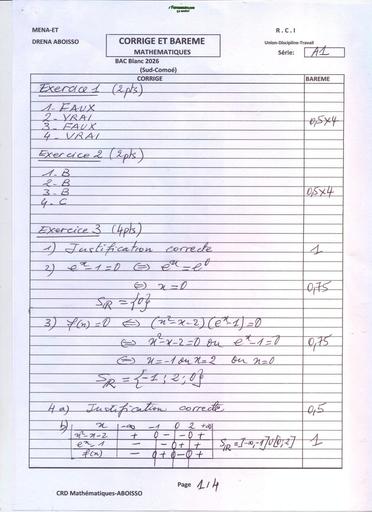 MENA-ET
DRENA ABOISSO
CORRIGE ET BAREME
MATHEMATIQUES
BAC Blanc 2026
(Sud-Comoé)
R.C.I
Union-Discipline-Travail
Série: A1
CORRIGE BAREME
Exercice 1 (2pts)
1- FAUX
2- VRAI
3- FAUX
4- VRAI
0,5x4
Exercice 2 (2pts)
1. B
2. B
3. B
4. C
0,5x4
Exercice 3 (4pts)
1) Justification correcte 1
2) eˣ-1=0 ⇔ eˣ=e⁰
⇔ x=0 0,75
Sℝ = {0}
3) f(x)=0 ⇔ (x²-x-2)(eˣ-1)=0
⇔ x²-x-2=0 ou eˣ-1=0 0,75
⇔ x=-1 ou x=2 ou x=0
Sℝ = {-1; 2; 0}
4a) Justification correcte 0,5
b) x -∞ -1 0 2 +∞
x²-x-2 + 0 - - 0 +
eˣ-1 - - 0 + +
f(x) - 0 + 0 - 0 +
Sℝ = ]-∞,-1]U[0;2] 1
Page 1/4
CRD Mathématiques-ABOISSO